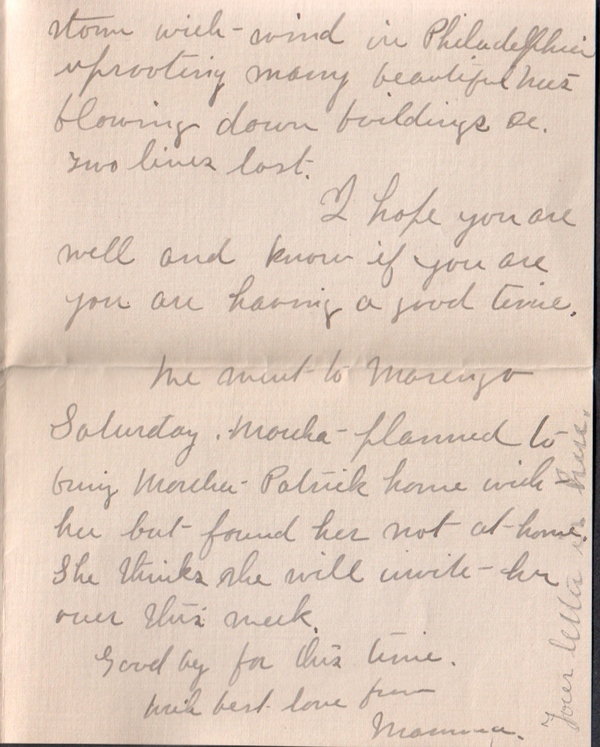 storm with wind in Philadelphia
uprooting many beautiful trees
blowing down buildings &c.
Two lives lost.
I hope you are
well and know if you are
you are having a good time.
We went to Marengo
Saturday. Martha planned to
bring Martha Patrick home with
her but found her not at home.
She thinks she will invite her
over this week.
Good by for this time.
With best love from
Mamma.
Your letter is here.